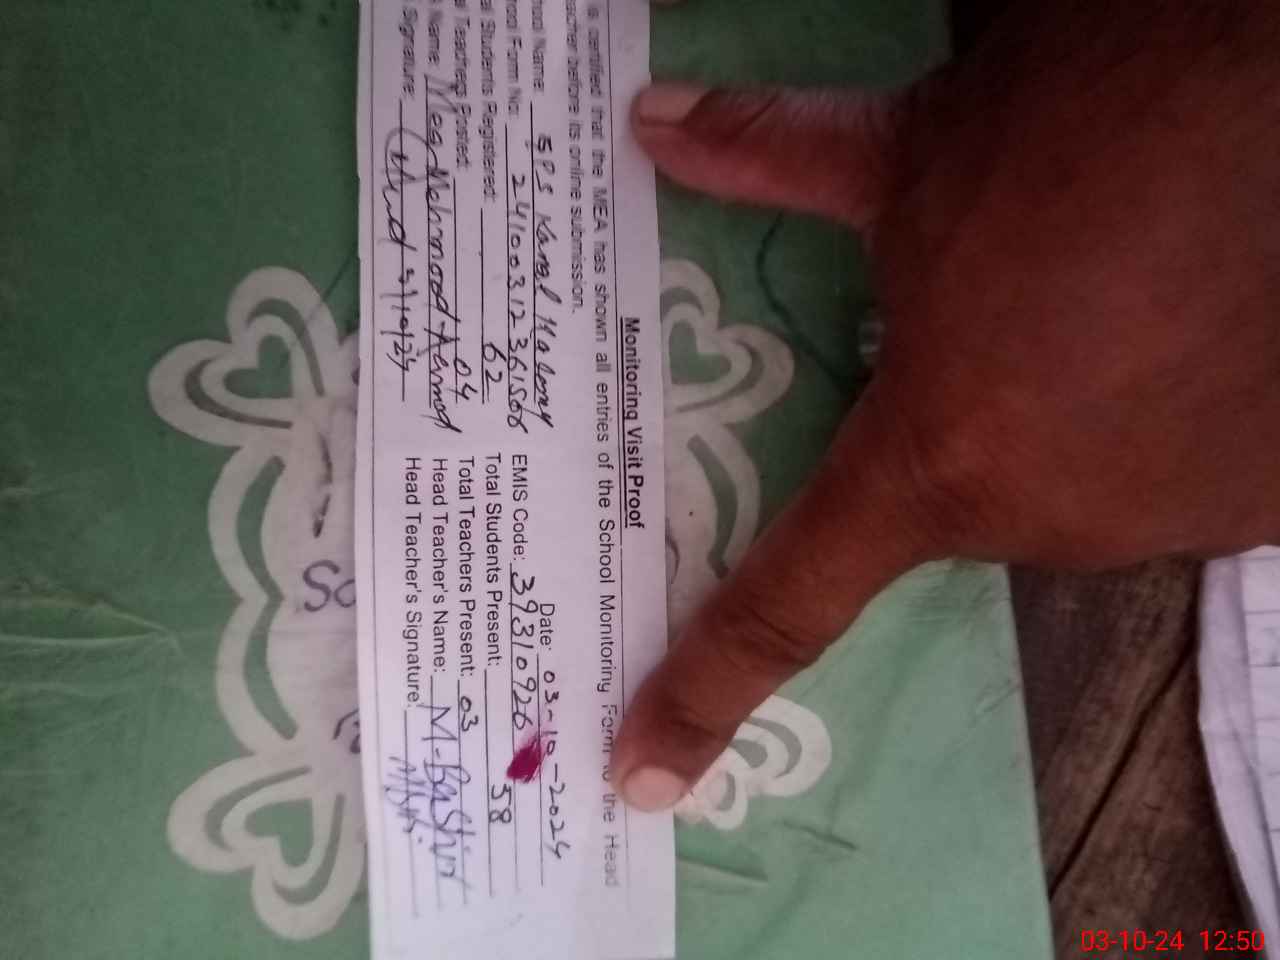 Monitoring Visit Proof
is certified that the MEA has shown all entries of the School Monitoring Form to the Head
eacher before its online submission.
Date: 03-10-2024
hool Name: GPS Kamal Kalony EMIS Code: 39310926
hool Form No: 2410031236150 
al Students Registered: 62 Total Students Present: 58
al Teachers Posted: 04 Total Teachers Present: 03
Name: Mehmood Ahmad Head Teacher's Name: M-Bashir
Signature: 3/10/24 Head Teacher's Signature:
03-10-24 12:50